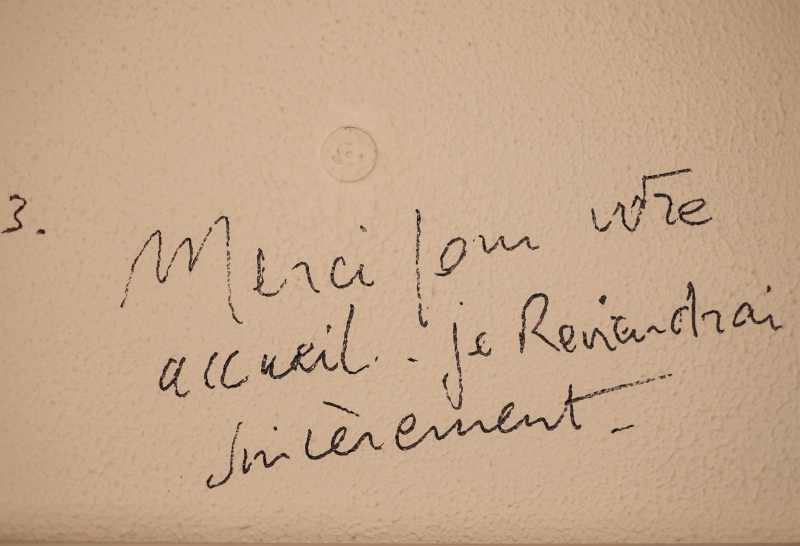 3.
Merci pour votre
accueil. - je Reviendrai
sincèrement -